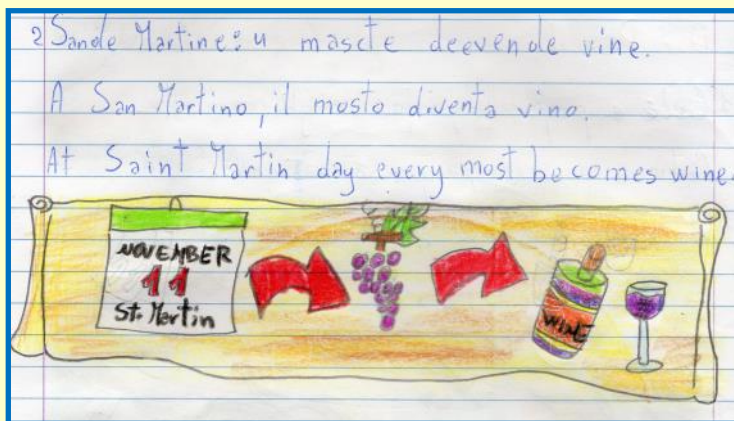 2 Sande Martine: u mascte deevende vine.
A San Martino, il mosto diventa vino.
At Saint Martin day every most becomes wine.
NOVEMBER
11
St. Martin
WINE